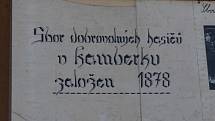 Sbor dobrovolných hasičů
v Kamberku
založen 1878